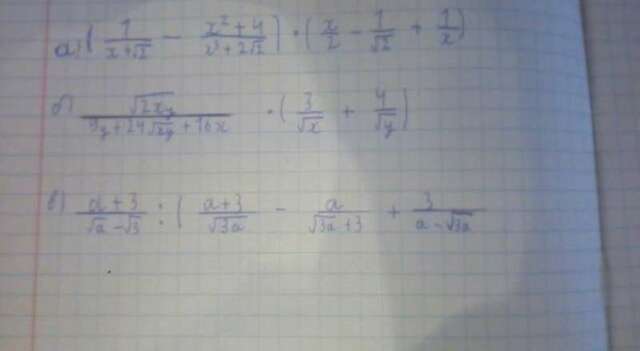 а) ( 1/(x+√2) − (x²+4)/(x³+2√2) ) · ( x/2 − 1/√2 + 1/x )
б) √(2xy)/(9y+24√(xy)+16x) · ( 3/√x + 4/√y )
в) (a+3)/(√a−√3) : ( (a+3)/√(3a) − a/(√(3a)+3) + 3/(a−√(3a))